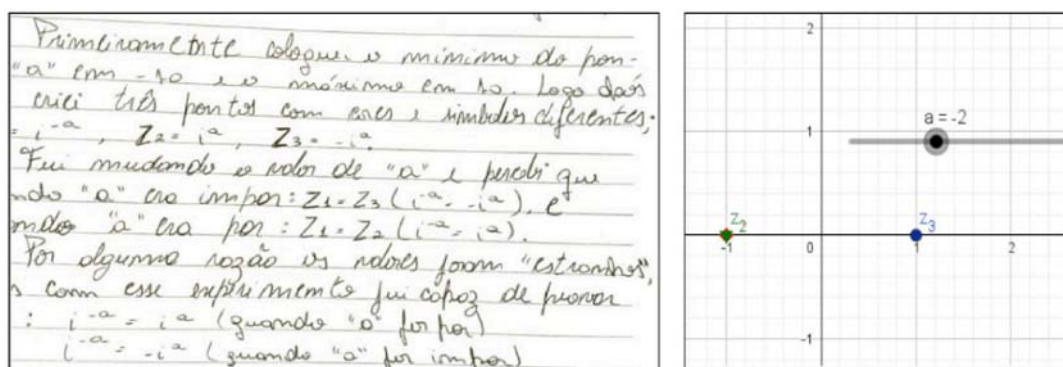 Primeiramente coloquei o mínimo do pon-
"a" em -10 e o máximo em 10. Logo após
criei três pontos com cores e símbolos diferentes;
= i^-a, Z2 = i^a, Z3 = -i^a.
Fui mudando o valor de "a" e percebi que
ndo "a" era impar: Z1 = Z3 (i^-a = -i^a), e
ando "a" era par: Z1 = Z2 (i^-a = i^a).
Por alguma razão os valores foram "estranhos",
s com esse experimento fui capaz de provar
: i^-a = i^a (quando "a" for par)
i^-a = -i^a (quando "a" for impar)
2
a = -2
1
z2
z3
-1
0
1
2
-1